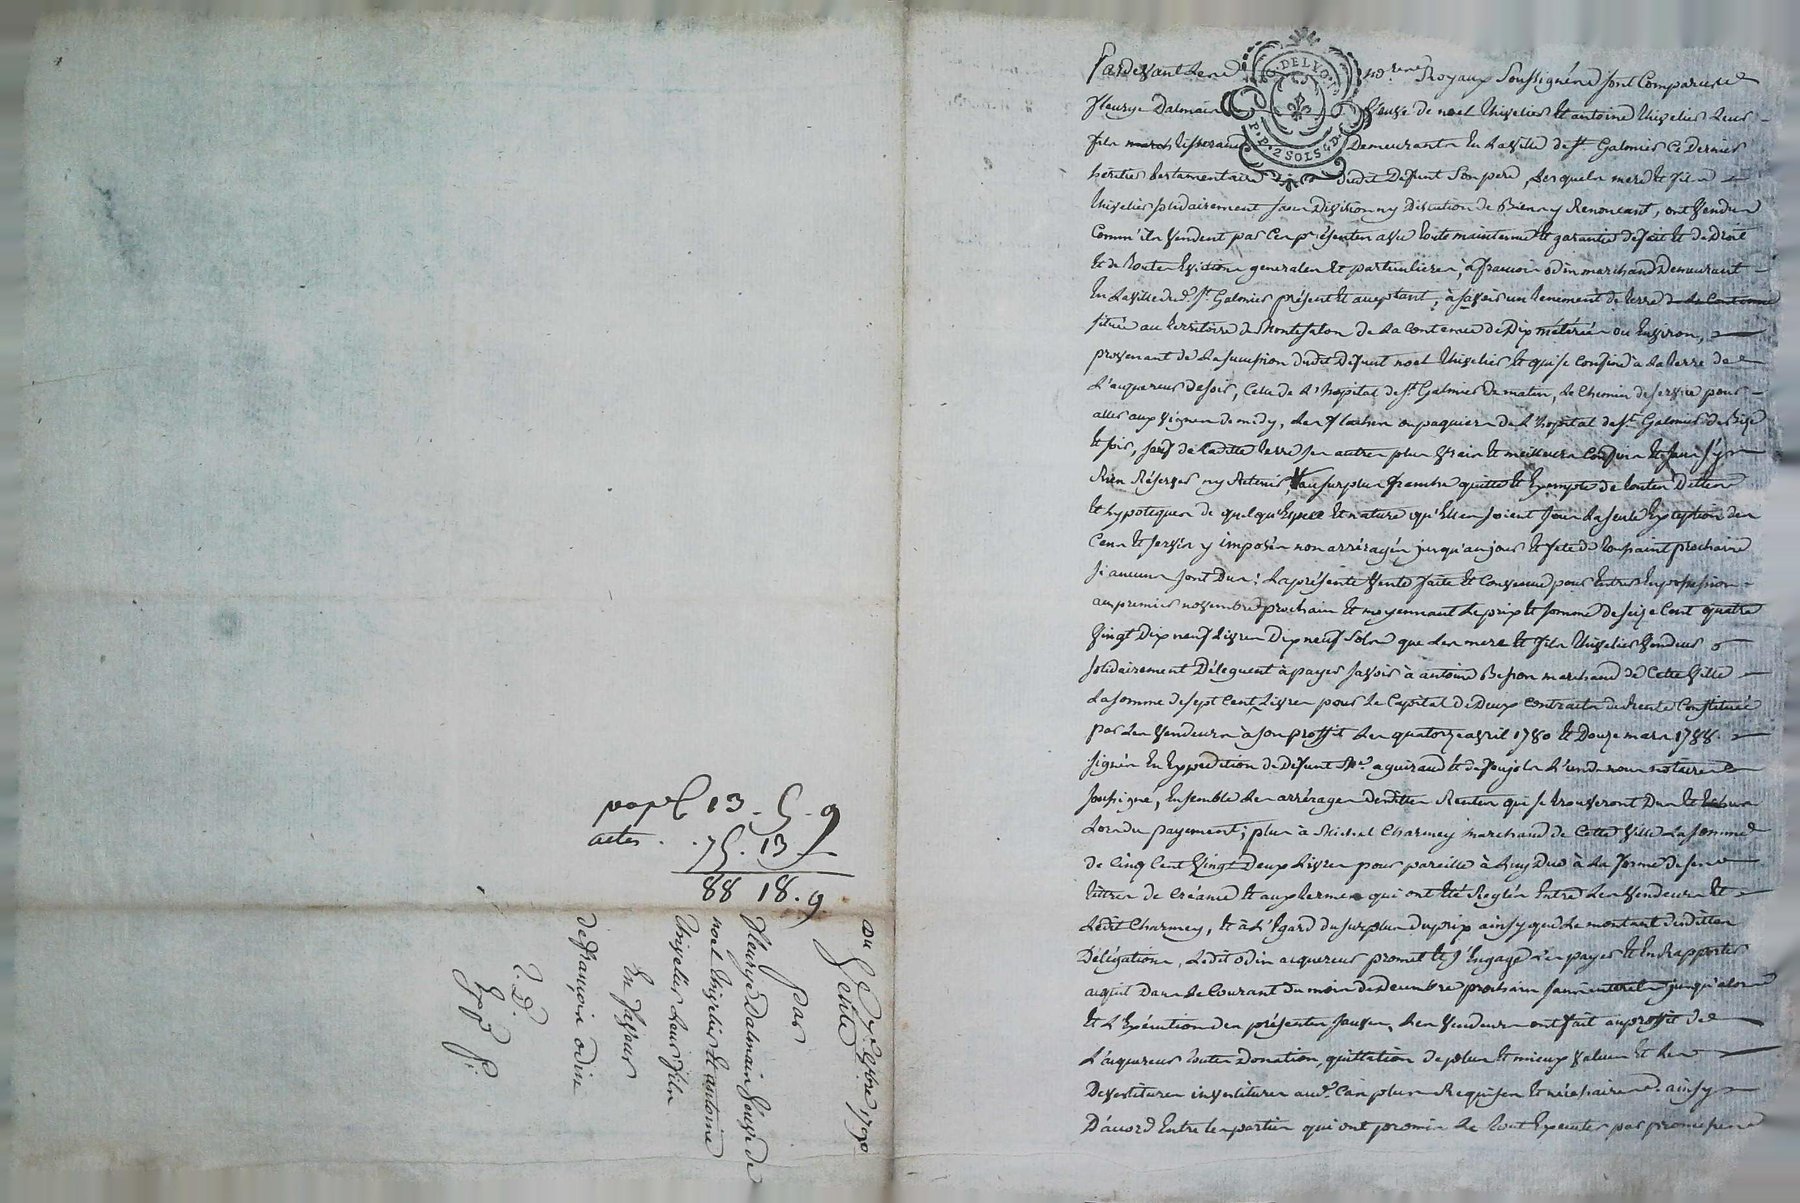 papel 13 . 5 . 9
actes . . 75 . 13
88 18 . 9
Du 9bre 1790
Vente
par
fleurye Dalmain veuve de
noel thivelier Et antoine
thivelier leur fils
En faveur
de francoin odin
2 D.
Exp. f.
G. DE LYON
P. P. 2 SOLS 4 D.
Pardevant Les No.res Royaux Soussignéz sont Comparus
fleurye Dalmain Veuve de noel thivelier Et antoine thivelier Leur
fils march Demeurants En La ville de St. Galmier Ce Dernier
héritier testamentaire dudit Défunt Son pere, Lesquels mere Et fils
thivelier solidairement sans Division ny Discution de Biens y Renoncant, ont Vendu
Comm'ils Vendent par Ces présentes avec toute maintenue Et garantie de fait Et de Droit
Et de toutes Evictions generales Et particulieres, à francois odin marchand Demeurant
En La ville dud. St. Galmier présent Et acceptant, à savoir un tenement de terre de La Contenue
située au territoire de Montfalon de La Contenue de Dix métérées ou Environ,
provenant de La succession dudit Défunt noel thivelier Et qui se Confine à La terre de
L'acquereur de soir, Celle de L'hopital de St. Galmier De matin, Le Chemin de servie pour
aller aux vignes de midy, Les paquiers de L'hopital de St. Galmier De Bise
Et soir, sauf de Ladite terre ses autres plus vrais Et meilleurs Confins Et sans s'y
Rien Réserver ny Retenir, au surplus franche quitte Et Exempte de toutes Dettes
Et hypoteques de quelqu'Espece Et nature qu'Elles soient sous La seule Exception des
Cens Et servis y imposés non arréragés jusqu'au jour Et fete de toussaint prochaine
si aucuns sont Dus: La présente Vente faite Et Convenue pour Entrer En possession
au premier novembre prochain Et moyennant Le prix Et somme De seize Cent quatre
Vingt Dix neuf Livres Dix neuf Sols que Les mere Et fils thivelier Vendeurs
solidairement Déleguent à payer savoir à antoine Besson marchand de Cette Ville
La somme de sept Cent Livres pour Le Capital de Deux Contracts de Rente Constituée
par Les Vendeurs à son proffit Les quatorze avril 1780 Et Douze mars 1788.
signés En Expedition de Défunt Me. aguiraud Et defoujols L'un de nous notaires
soussigné, Ensemble Les arrérages Desdittes Rentes qui se trouveront Dus Et
Lors du payement; plus à Michel Charmey marchand de Cette Ville La somme
de Cinq Cent Vingt Deux Livres pour pareille à Luy Due à La forme de ses
titres de Créance Et aux termes qui ont Eté Reglés Entre Les Vendeurs Et
Ledit Charmey, Et à L'Egard du surplus du prix ainsy que Le montant desdittes
Délégations, Ledit odin acquereur promet Et s'Engage d'en payer Et En Rapporter
acquit Dans Le Courant du mois de Decembre prochain sans interets jusqu'alors
Et L'Exécution des présentes sauve, Les Vendeurs ont fait au profit de
L'acquereur toutes Donation, quittation de plus Et mieux Value Et Les
Devestitures investitures aud. Cas plus Requises Et nécéssaires. ainsy
D'accord Entre Les parties qui ont promis Le tout Executer par promesses